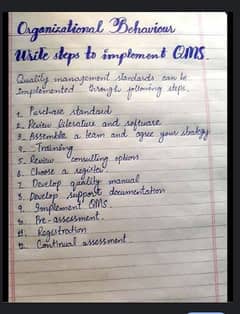 Organizational Behaviour
Write steps to implement QMS.
Quality management standards can be
Implemented through following steps.
1. Purchase standard
2. Review literature and software
3. Assemble a team and agree your strategy
4. Training
5. Review consulting options
6. Choose a register
7. Develop quality manual
8. Develop support documentation
9. Implement QMS
10. Pre-assessment.
11. Registration
12. Continual assessment.